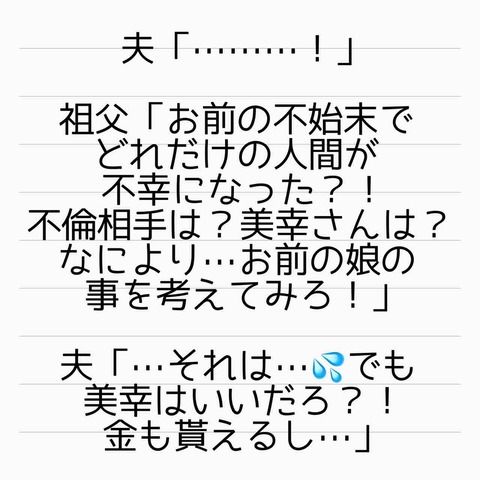 夫「………！」
祖父「お前の不始末で
どれだけの人間が
不幸になった？！
不倫相手は？美幸さんは？
なにより…お前の娘の
事を考えてみろ！」
夫「…それは…💦でも
美幸はいいだろ？！
金も貰えるし…」